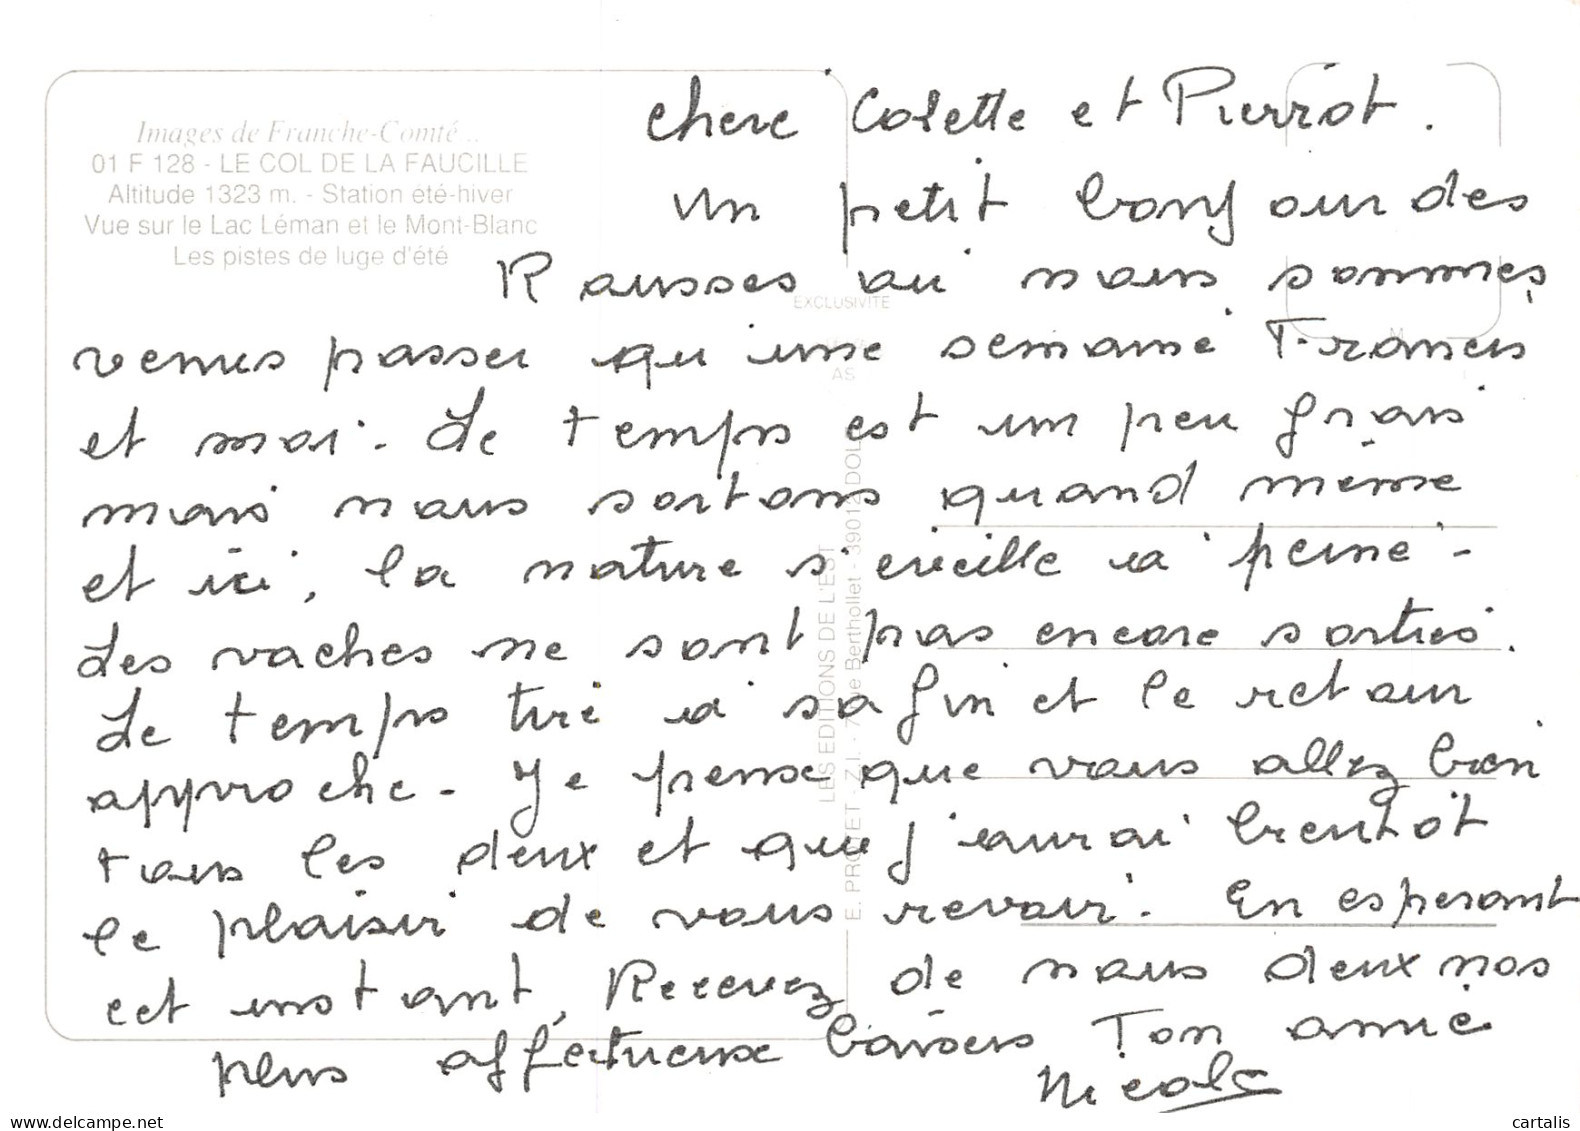 Images de Franche-Comté...
01 F 128 - LE COL DE LA FAUCILLE
Altitude 1323 m. - Station été-hiver
Vue sur le Lac Léman et le Mont-Blanc
Les pistes de luge d'été
EXCLUSIVITE
AS
LES EDITIONS DE L'EST
E. PROTET - Z.I. - 7 rue Berthollet - 39012 DOL
chere Colette et Pierrot.
un petit bonjour des
Rousses ou nous sommes
venus passer qu'une semaine Francis
et moi. Le temps est un peu frais
mais nous sortons quand même
et ici, la nature s'eveille à peine -
Les vaches ne sont pas encore sorties.
Le temps tire à sa fin et le retour
approche. Je pense que vous allez bien
tous les deux et que j'aurai bientôt
le plaisir de vous revoir. En esperant
cet instant, Recevez de nous deux nos
plus affectueux baisers Ton amie
Nicole
delcampe.net
cartalis